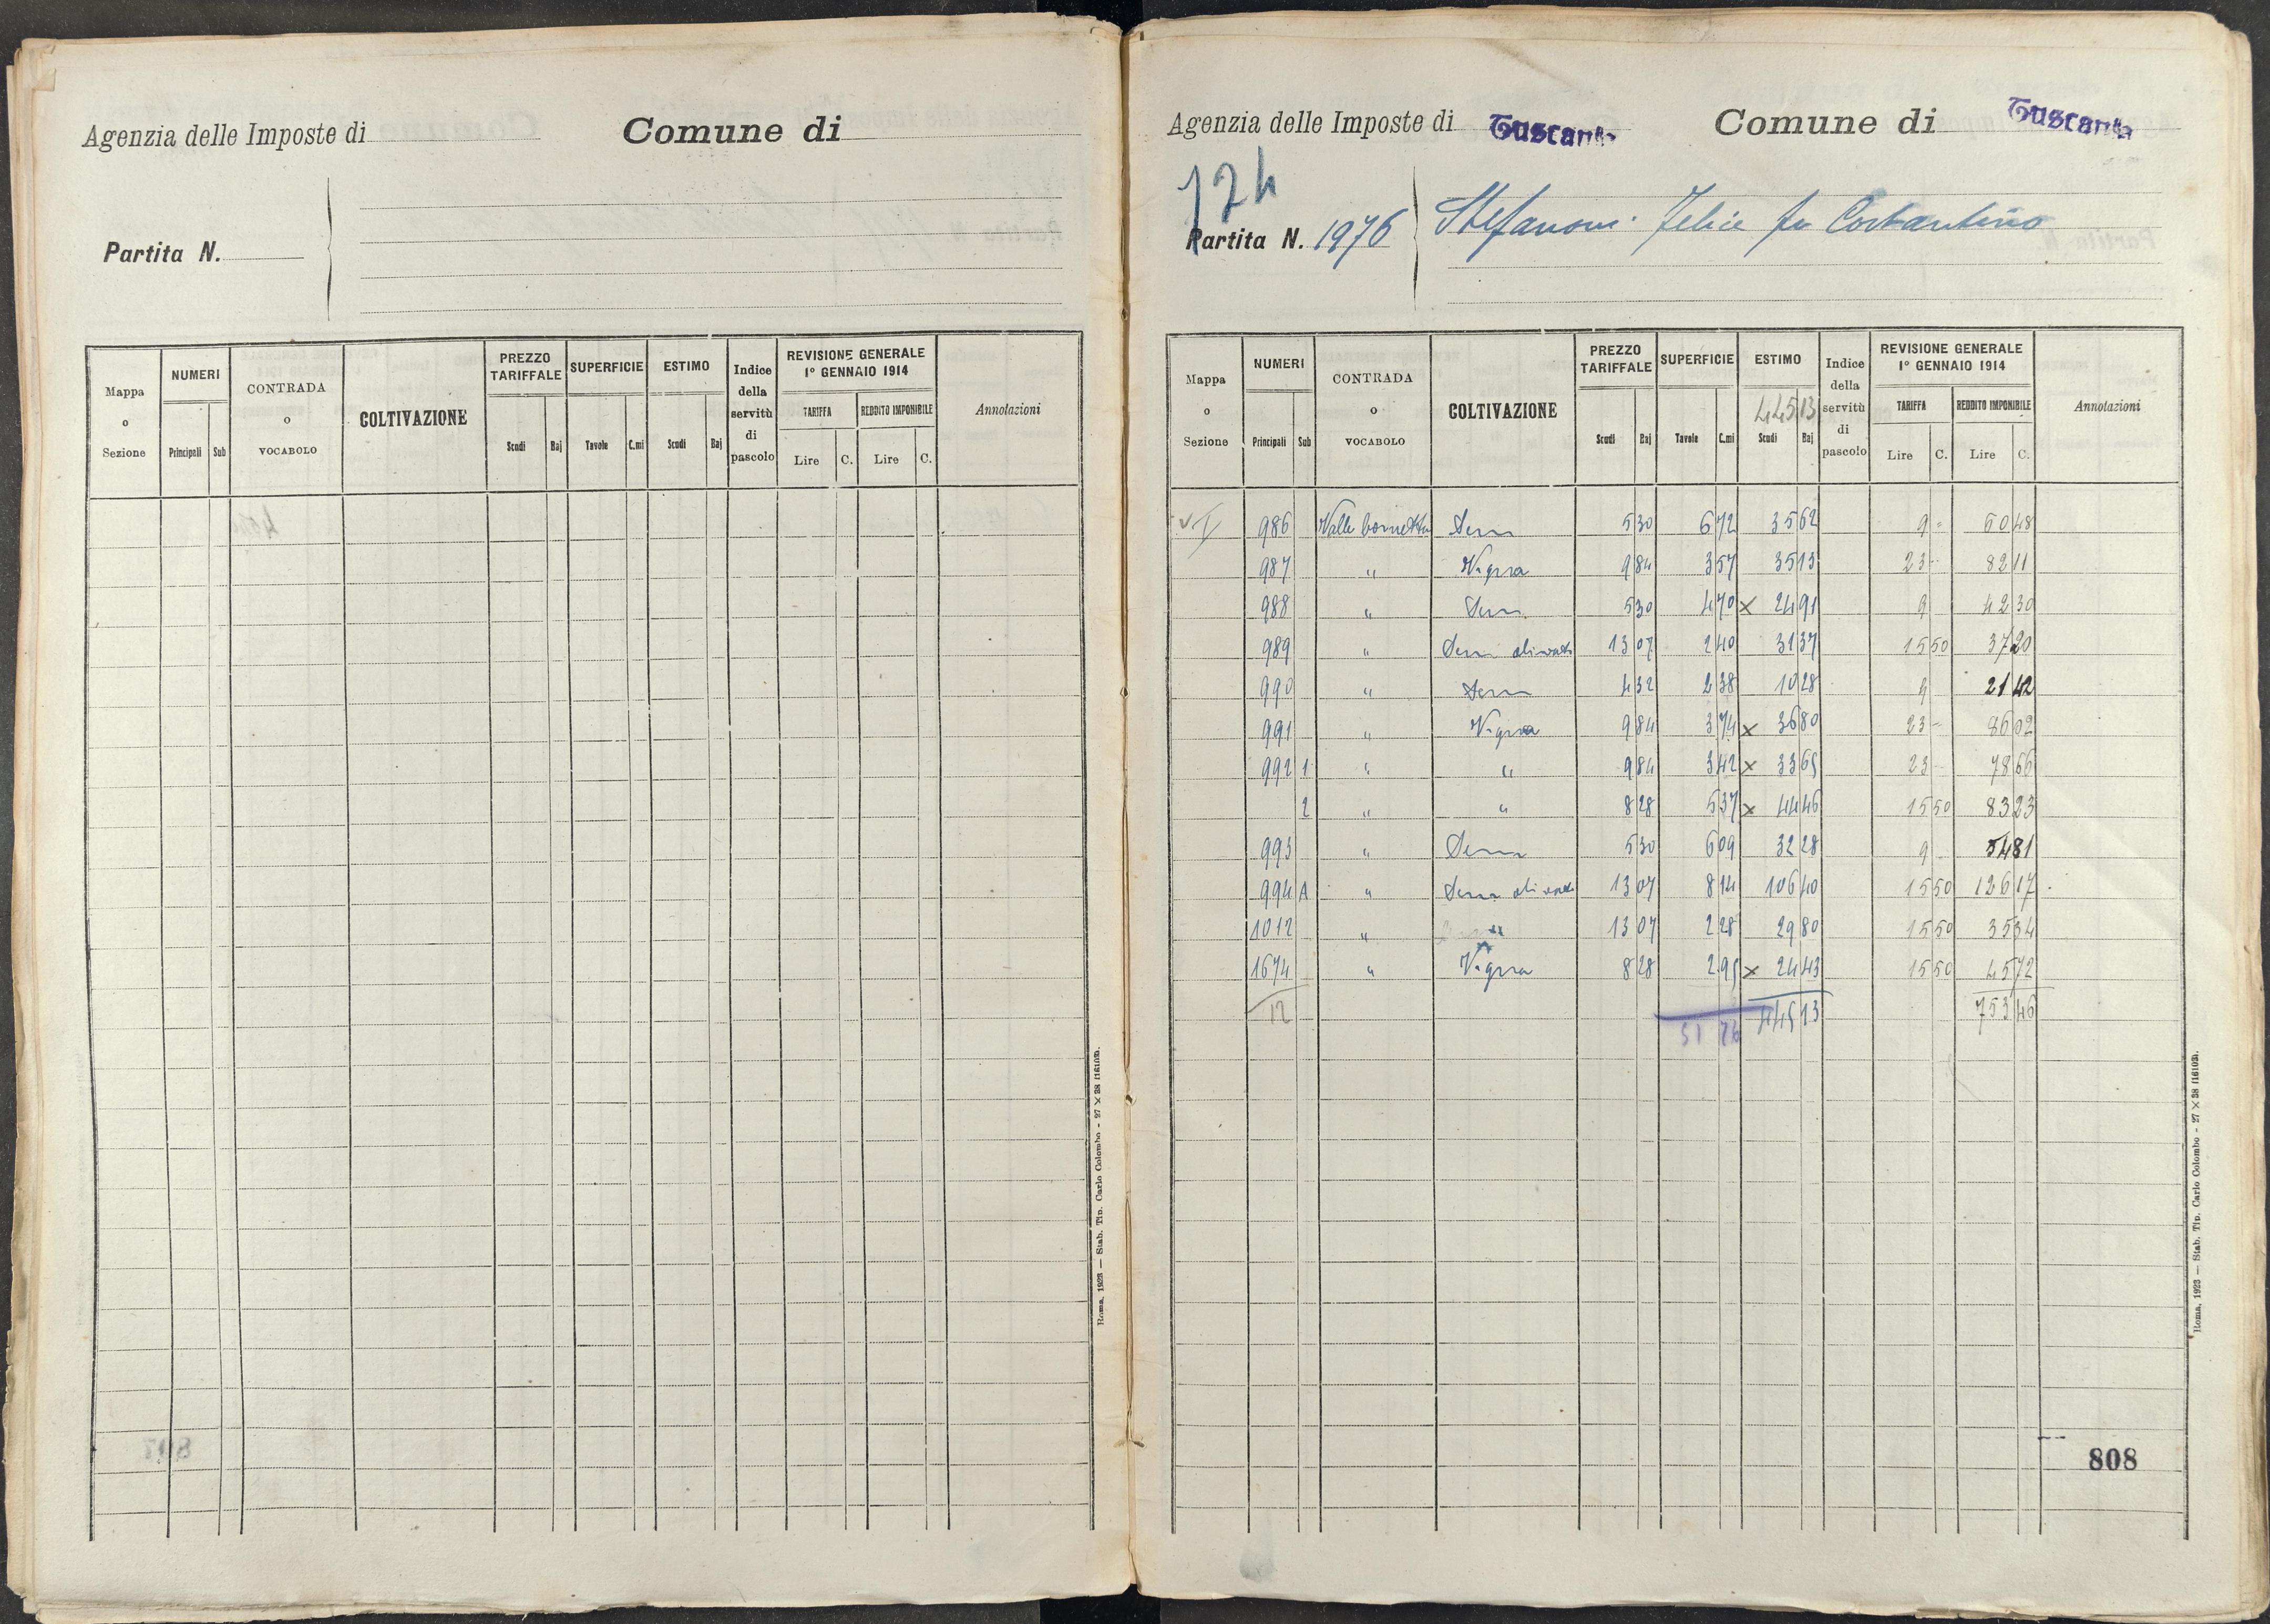 Agenzia delle Imposte di
Comune di
Partita N.
Mappa o Sezione
NUMERI
Principali Sub
CONTRADA o VOCABOLO
COLTIVAZIONE
PREZZO TARIFFALE
Scudi Baj
SUPERFICIE
Tavole C.mi
ESTIMO
Scudi Baj
Indice della servitù di pascolo
REVISIONE GENERALE
1° GENNAIO 1914
TARIFFA
Lire C.
REDDITO IMPONIBILE
Lire C.
Annotazioni
Roma, 1923 — Stab. Tip. Carlo Colombo - 27 × 38 (16103).
Agenzia delle Imposte di Tuscania
Comune di Tuscania
124
Partita N. 1976 Stefanoni Felice fu Costantino
Mappa o Sezione
NUMERI
Principali Sub
CONTRADA o VOCABOLO
COLTIVAZIONE
PREZZO TARIFFALE
Scudi Baj
SUPERFICIE
Tavole C.mi
ESTIMO
445 13
Scudi Baj
Indice della servitù di pascolo
REVISIONE GENERALE
1° GENNAIO 1914
TARIFFA
Lire C.
REDDITO IMPONIBILE
Lire C.
Annotazioni
986 Valle Sem 5 30 6 72 35 62 9 - 60 48
987 " Vigna 9 84 3 57 35 13 23 - 82 11
988 " Sem 5 30 4 70 × 24 91 9 42 30
989 " Sem olivato 13 07 2 40 31 37 15 50 37 20
990 " Sem 4 32 2 38 10 28 9 21 42
991 " Vigna 9 84 3 74 × 36 80 23 - 86 02
992 1 " " 9 84 3 42 × 33 65 23 - 78 66
2 " " 8 28 5 37 × 44 46 15 50 83 23
993 " Sem 5 30 6 09 32 28 9 - 54 81
994 A " Sem olivato 13 07 8 14 106 40 15 50 126 17
1012 " " 13 07 2 28 29 80 15 50 35 34
1674 " Vigna 8 28 2 95 × 24 43 15 50 45 72
12 51 76 445 13 753 46
808
Roma, 1923 — Stab. Tip. Carlo Colombo - 27 × 38 (16103).